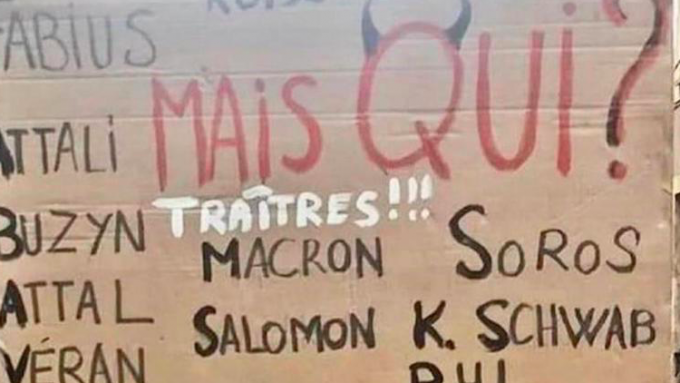 FABIUS
MAIS QUI?
ATTALI
TRAÎTRES!!!
BUZYN
MACRON
SOROS
ATTAL
SALOMON
K. SCHWAB
VÉRAN